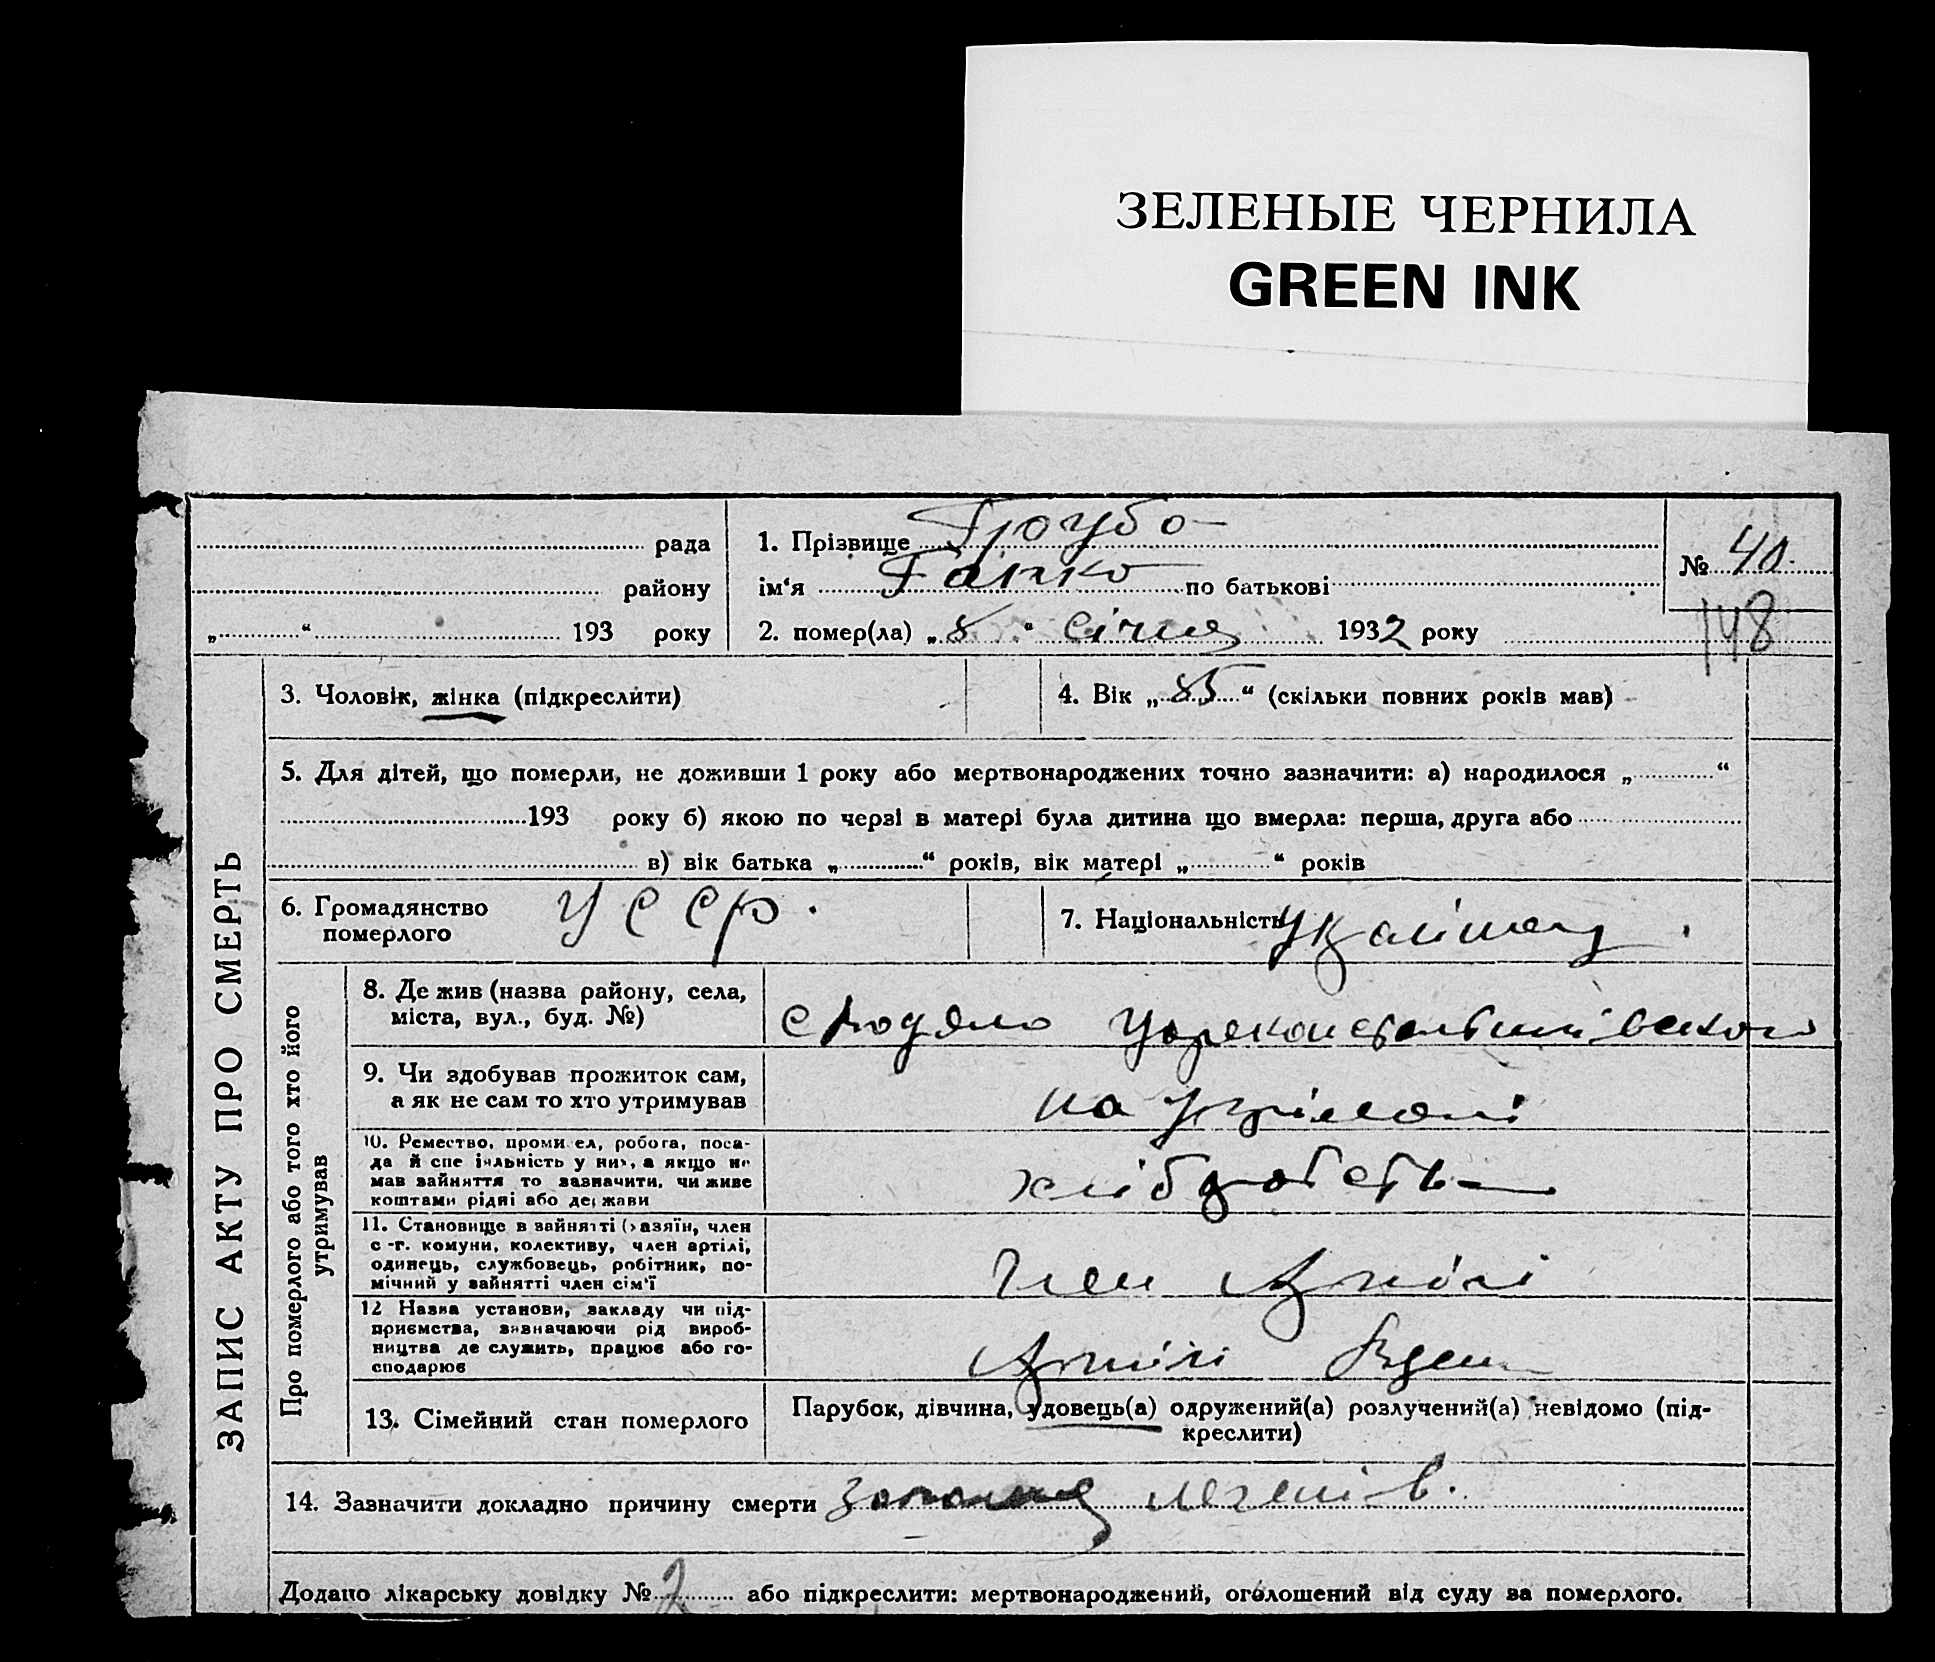 ЗЕЛЕНЫЕ ЧЕРНИЛА
GREEN INK
рада
району
„ “ 193 року
1. Прізвище
ім‘я Гапка по батькові
2. помер(ла) „ 8 “ січня 1932 року
№ 40.
148
ЗАПИС АКТУ ПРО СМЕРТЬ
3. Чоловік, жінка (підкреслити)
4. Вік „ 85 “ (скільки повних років мав)
5. Для дітей, що померли, не доживши 1 року або мертвонароджених точно зазначити: а) народилося „ “
193 року б) якою по черзі в матері була дитина що вмерла: перша, друга або
в) вік батька „ “ років, вік матері „ “ років
6. Громадянство
померлого
УССР.
7. Національність
Про померлого або того хто його
утримував
8. Де жив (назва району, села,
міста, вул., буд. №)
9. Чи здобував прожиток сам,
а як не сам то хто утримував
на утримані
10. Ремество, промисел, робота, поса-
да й спеціяльність у них, а якщо не
мав зайняття то зазначити, чи живе
коштами рідні або держави
хліборобство
11. Становище в зайнятті (хазяїн, член
с-г. комуни, колективу, член артілі,
одинець, службовець, робітник, по-
мічний у зайнятті член сім'ї
Член Артілі
12 Назва установи, закладу чи під-
приємства, зазначаючи рід вироб-
ництва де служить, працює або го-
сподарює
Артілі
13. Сімейний стан померлого
Парубок, дівчина, удовець(а) одружений(а) розлучений(а) невідомо (під-
креслити)
14. Зазначити докладно причину смерти легенів.
Додано лікарську довідку № 2 або підкреслити: мертвонароджений, оголошений від суду за померлого.